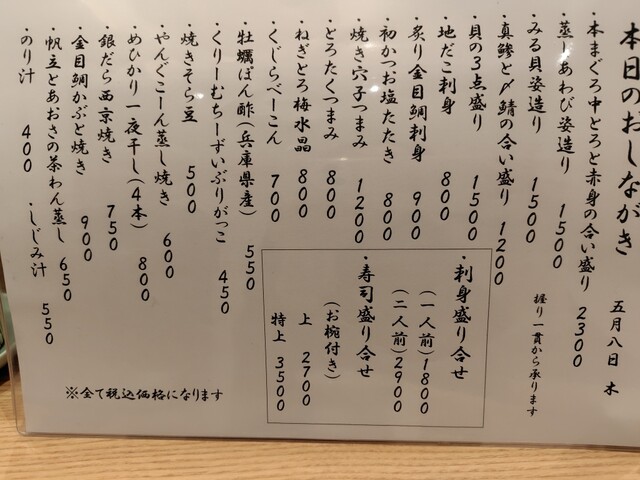 本日のおしながき
五月八日 木
・本まぐろ中とろと赤身の合い盛り 2300
・蒸しあわび姿造り 1500
・みる貝姿造り 1500
握り一貫から承ります
・真鯵と〆鯖の合い盛り 1200
・貝の3点盛り 1500
・地だこ刺身 800
・炙り金目鯛刺身 900
・初かつお塩たたき 800
・焼き穴子つまみ 1200
・とろたくつまみ 800
・ねぎとろ梅水晶 800
・くじらべーこん 700
・牡蠣ぽん酢(兵庫県産) 550
・くりーむちーずいぶりがっこ 450
・焼きそら豆 500
・やんぐこーん蒸し焼き 600
・めひかり一夜干し(4本) 800
・銀だら西京焼き 750
・金目鯛かぶと焼き 900
・帆立とあおさの茶わん蒸し 650
・のり汁 400
・しじみ汁 550
・刺身盛り合せ
(一人前)1800
(二人前)2900
・寿司盛り合せ
(お椀付き)
上 2700
特上 3500
※全て税込価格になります